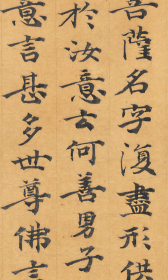 菩薩名字復盡形供
於汝意云何善男子
意言甚多世尊佛言